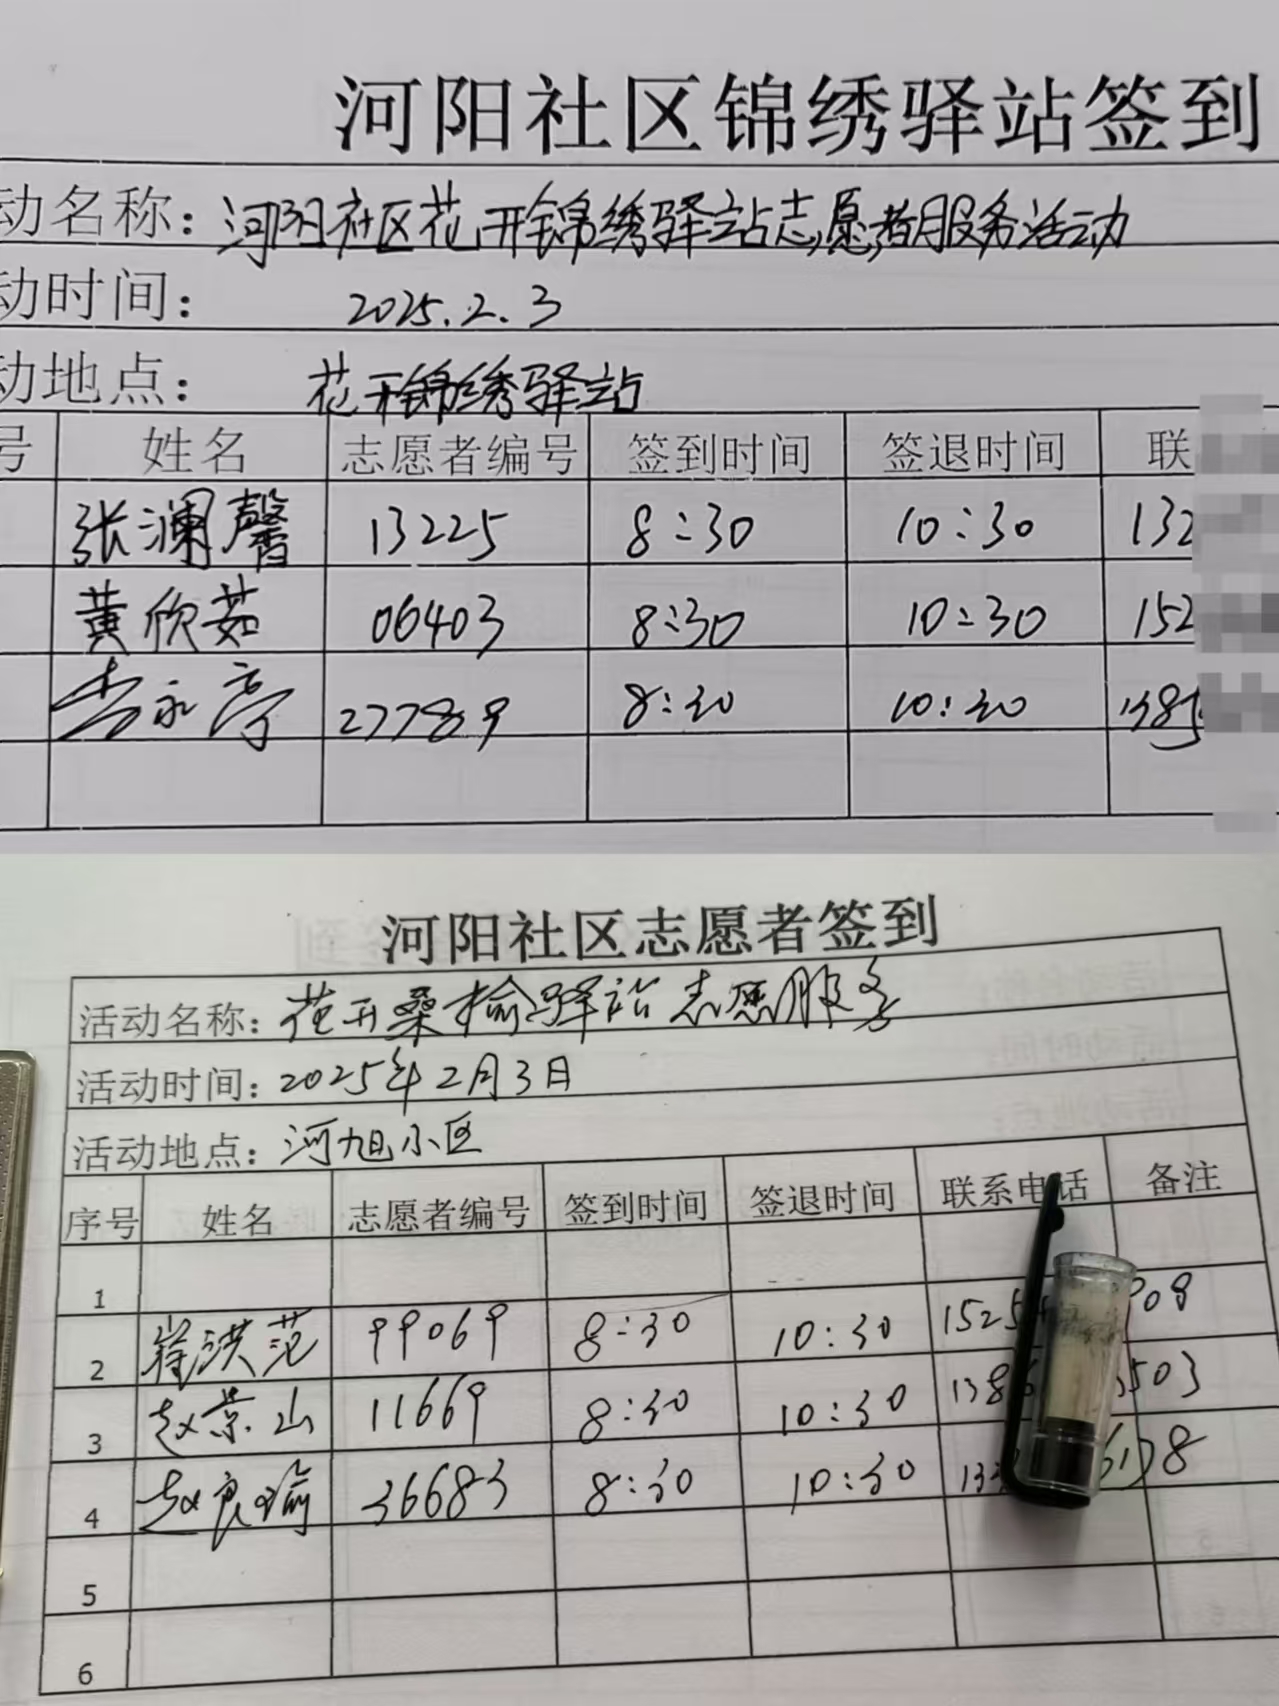 河阳社区锦绣驿站签到
动名称：河阳社区花开锦绣驿站志愿者服务活动
动时间： 2025.2.3
动地点： 花开锦绣驿站
号 姓名 志愿者编号 签到时间 签退时间 联
张澜馨 13225 8:30 10:30 132
黄欣茹 06403 8:30 10:30 152
李永亭 27789 8:30 10:30 1385
河阳社区志愿者签到
活动名称：花开桑榆驿站志愿服务
活动时间：2025年2月3日
活动地点：河旭小区
序号 姓名 志愿者编号 签到时间 签退时间 联系电话 备注
1
2 洪范 99069 8:30 10:30 1525 09
3 赵景山 11669 8:30 10:30 138 503
4 赵良瑜 36683 8:30 10:30 13 6178
5
6